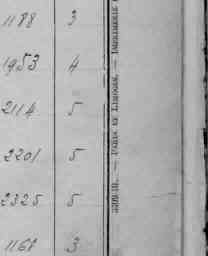 1188 3
1953 4
2114 5
2201 5
2325 5
1168 3
— PARIS ET LIMOGES. — IMPRIMERIE